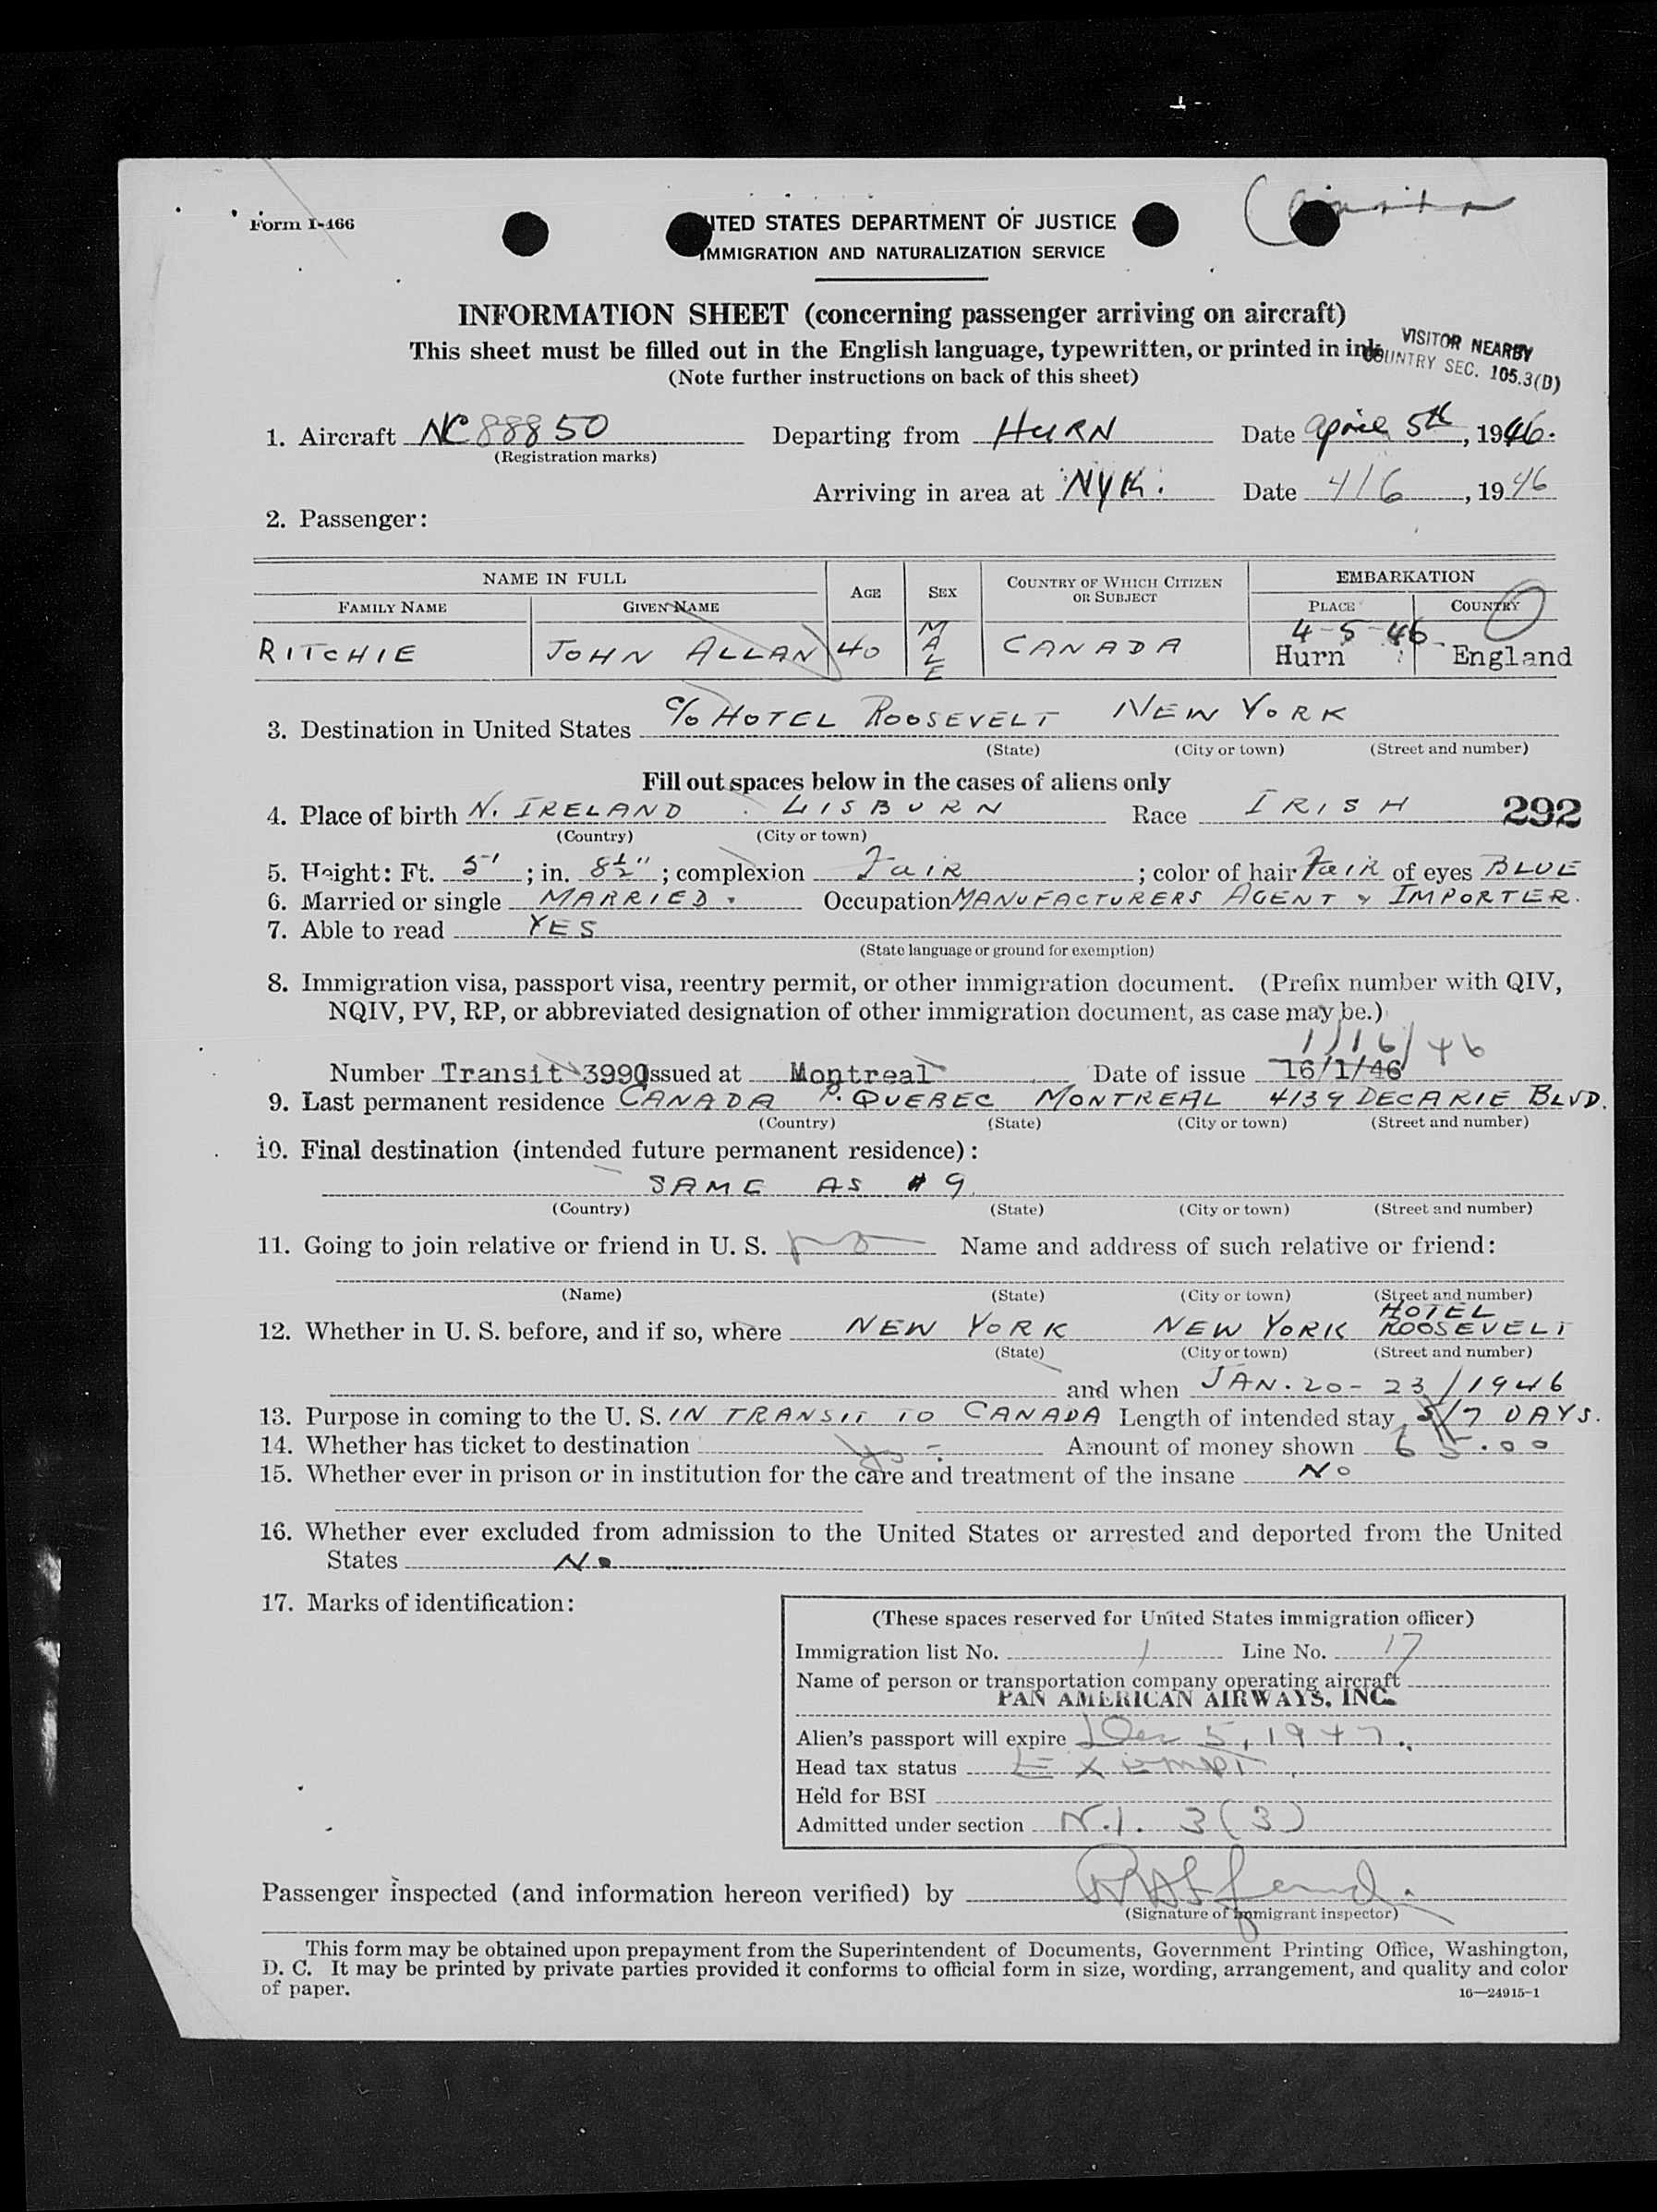 Form I-466
UNITED STATES DEPARTMENT OF JUSTICE
IMMIGRATION AND NATURALIZATION SERVICE
INFORMATION SHEET (concerning passenger arriving on aircraft)
This sheet must be filled out in the English language, typewritten, or printed in ink.
VISITOR NEARBY
COUNTRY SEC. 105.3(D)
(Note further instructions on back of this sheet)
1. Aircraft NC 88850 Departing from HURN Date April 5th, 1946.
(Registration marks)
Arriving in area at NYK. Date 4/6, 1946
2. Passenger:
NAME IN FULL AGE SEX COUNTRY OF WHICH CITIZEN OR SUBJECT EMBARKATION
FAMILY NAME GIVEN NAME PLACE COUNTRY
4-5-46
RITCHIE JOHN ALLAN 40 MALE CANADA Hurn England
3. Destination in United States c/o HOTEL ROOSEVELT NEW YORK
(State) (City or town) (Street and number)
Fill out spaces below in the cases of aliens only
4. Place of birth N. IRELAND LISBURN Race IRISH 292
(Country) (City or town)
5. Height: Ft. 5'; in. 8½"; complexion Fair; color of hair Fair of eyes BLUE
6. Married or single MARRIED. Occupation MANUFACTURERS AGENT & IMPORTER.
7. Able to read YES
(State language or ground for exemption)
8. Immigration visa, passport visa, reentry permit, or other immigration document. (Prefix number with QIV,
NQIV, PV, RP, or abbreviated designation of other immigration document, as case may be.)
1/16/46
Number Transit 3990 Issued at Montreal Date of issue 16/1/46
9. Last permanent residence CANADA P. QUEBEC MONTREAL 4139 DECARIE BLVD.
(Country) (State) (City or town) (Street and number)
10. Final destination (intended future permanent residence):
SAME AS #9
(Country) (State) (City or town) (Street and number)
11. Going to join relative or friend in U. S. no Name and address of such relative or friend:
(Name) (State) (City or town) (Street and number)
12. Whether in U. S. before, and if so, where NEW YORK NEW YORK HOTEL ROOSEVELT
(State) (City or town) (Street and number)
and when JAN. 20 - 23/1946
13. Purpose in coming to the U. S. IN TRANSIT TO CANADA Length of intended stay 5/7 DAYS.
14. Whether has ticket to destination yes - Amount of money shown 65.00
15. Whether ever in prison or in institution for the care and treatment of the insane No
16. Whether ever excluded from admission to the United States or arrested and deported from the United
States No
17. Marks of identification:
(These spaces reserved for United States immigration officer)
Immigration list No. 1 Line No. 17
Name of person or transportation company operating aircraft
PAN AMERICAN AIRWAYS, INC.
Alien's passport will expire Dec 5, 1947.
Head tax status EXEMPT
Held for BSI
Admitted under section N.I. 3(3)
Passenger inspected (and information hereon verified) by
(Signature of immigrant inspector)
This form may be obtained upon prepayment from the Superintendent of Documents, Government Printing Office, Washington,
D. C. It may be printed by private parties provided it conforms to official form in size, wording, arrangement, and quality and color
of paper.
16—24915-1